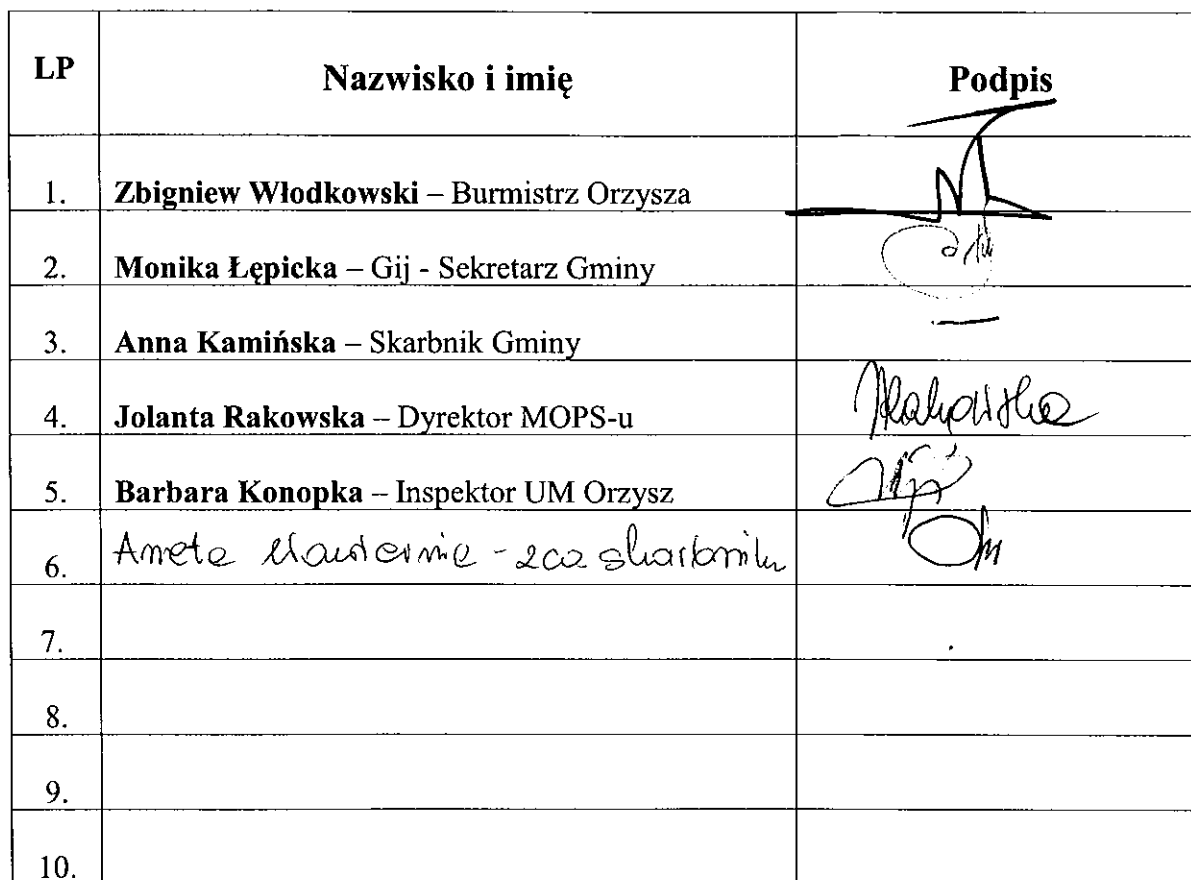 LP Nazwisko i imię Podpis
1. Zbigniew Włodkowski – Burmistrz Orzysza
2. Monika Łępicka – Gij - Sekretarz Gminy
3. Anna Kamińska – Skarbnik Gminy —
4. Jolanta Rakowska – Dyrektor MOPS-u Rakowska
5. Barbara Konopka – Inspektor UM Orzysz
6. Aneta - zca skarbnika
7.
8.
9.
10.